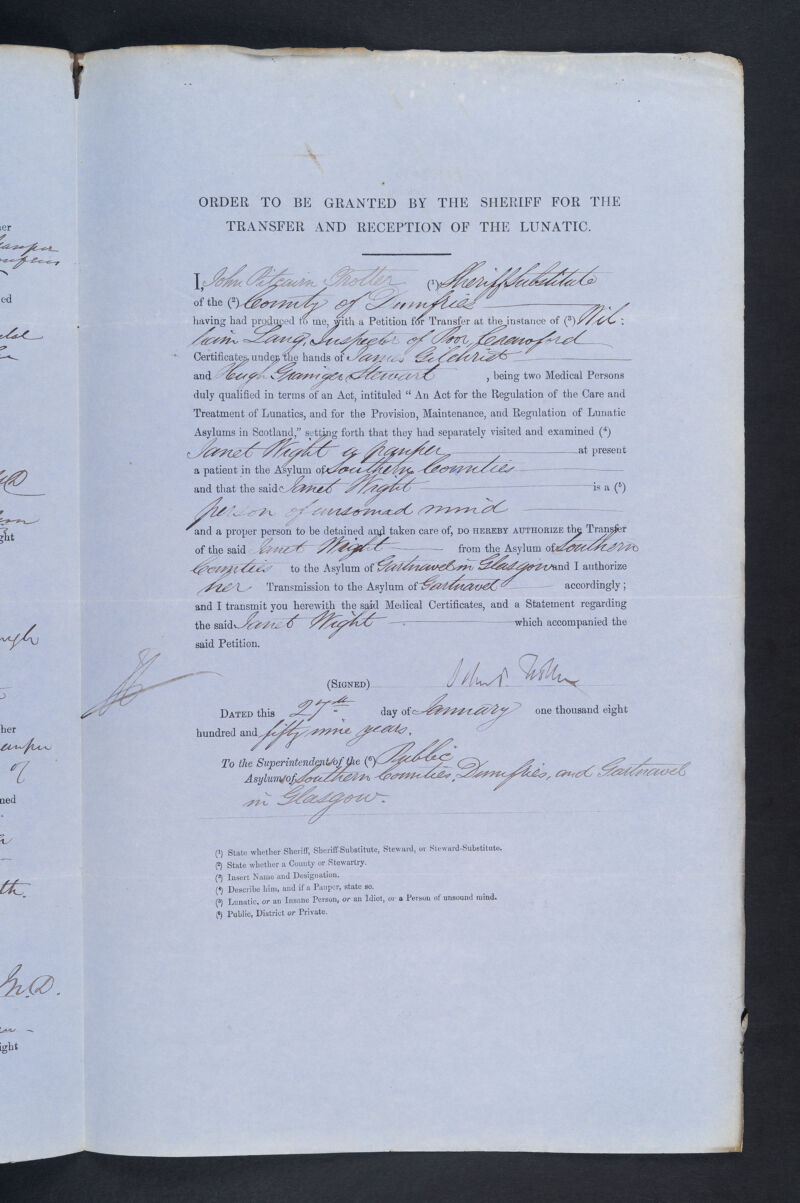 ORDER TO BE GRANTED BY THE SHERIFF FOR THE
TRANSFER AND RECEPTION OF THE LUNATIC.
I, John Pitcairn Trotter (1) Sheriff Substitute
of the (2) County of Dumfries
having had produced to me, with a Petition for Transfer at the instance of (3) Wil:
liam Lang, Inspector of Poor, Crawford
Certificates, under the hands of James Gilchrist
and Hugh Grainger Stewart, being two Medical Persons
duly qualified in terms of an Act, intituled “ An Act for the Regulation of the Care and
Treatment of Lunatics, and for the Provision, Maintenance, and Regulation of Lunatic
Asylums in Scotland,” setting forth that they had separately visited and examined (4)
Janet Wight a pauper at present
a patient in the Asylum of Southern Counties
and that the said Janet Wight is a (5)
person of unsound mind
and a proper person to be detained and taken care of, DO HEREBY AUTHORIZE the Transfer
of the said Janet Wight from the Asylum of Southern
Counties to the Asylum of Gartnavel in Glasgow and I authorize
her Transmission to the Asylum of Gartnavel accordingly;
and I transmit you herewith the said Medical Certificates, and a Statement regarding
the said Janet Wight which accompanied the
said Petition.
(SIGNED) John P. Trotter
DATED this 27th day of January one thousand eight
hundred and fifty nine years.
To the Superintendents of the (6) Public
Asylums of Southern Counties, Dumfries, and Gartnavel
in Glasgow.
(1) State whether Sheriff, Sheriff-Substitute, Steward, or Steward-Substitute.
(2) State whether a County or Stewartry.
(3) Insert Name and Designation.
(4) Describe him, and if a Pauper, state so.
(5) Lunatic, or an Insane Person, or an Idiot, or a Person of unsound mind.
(6) Public, District or Private.